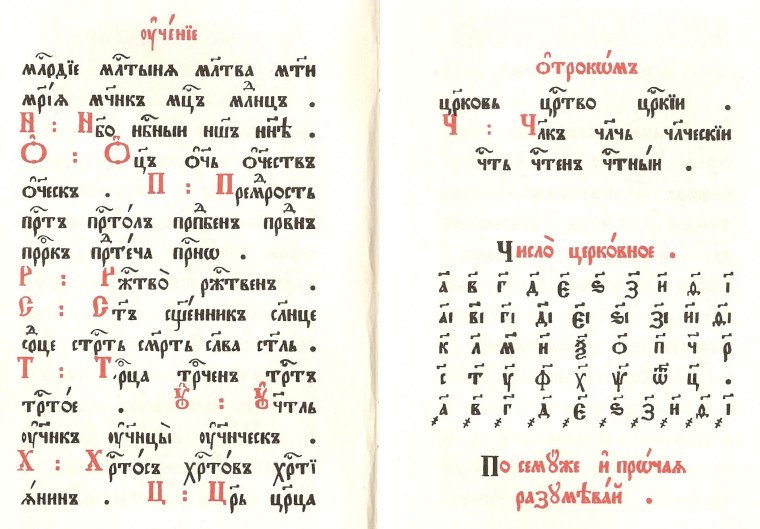 ᲂу҆че́нїе
млⷭ҇рдїе млⷭ҇тыня мл҃тва мт҃и
мр҃і́я мч҃нкъ мцⷭ҇ъ млⷣнцъ .
Н : Нб҃о нбⷭ҇ныи нш҃ъ нн҃ѣ .
Ѻ҆ : Ѻ҆ц҃ъ ѻч҃ь ѻч҃ествъ
ѻч҃ескъ . П : Премⷣрость
прⷪ҇тъ прⷭ҇то́лъ прпⷣбенъ првⷣнъ
прⷪ҇ркъ прⷣте́ча прⷭ҇нѡ .
Р : Ржⷭ҇тво̀ ржⷭ҇твенъ .
С : Ст҃ъ сщ҃е́нникъ сл҃нце
срⷣце стрⷭ҇ть смр҃ть сл҃ва ст҃ль .
Т : Трⷪ҇ца трⷪ҇ченъ трⷭ҇тъ
трⷭ҇то́е . Ꙋ҆ : Ꙋ҆чт҃ль
ᲂу҆чн҃къ ᲂу҆чн҃цы̀ ᲂу҆чн҃ческъ .
Х : Хрⷭ҇то́съ хрⷭ҇то́въ хрⷭ҇тї
я́нинъ . Ц : Цр҃ь цр҃ца
ѻ҆трокѡ́мъ
цр҃ковь црⷭ҇тво црⷭ҇кїи .
Ч : Чл҃къ чл҃чь чл҃ческїи
чⷭ҇ть чⷭ҇тенъ чⷭ҇тны́и .
Число̀ церко́вное .
а҃ в҃ г҃ д҃ є҃ ѕ҃ з҃ и҃ ѳ҃ і҃
а҃і в҃і г҃і д҃і є҃і ѕ҃і з҃і и҃і ѳ҃і
к҃ л҃ м҃ н҃ ѯ҃ ѻ҃ п҃ ч҃ р҃
с҃ т҃ у҃ ф҃ х҃ ѱ҃ ѿ҃ ц҃ .
҂а҃ ҂в҃ ҂г҃ ҂д҃ ҂є҃ ҂ѕ҃ ҂з҃ ҂и҃ ҂ѳ҃ ҂і҃
По семꙋ́же и҆ прѡ́чая
разꙋмѣва́й .